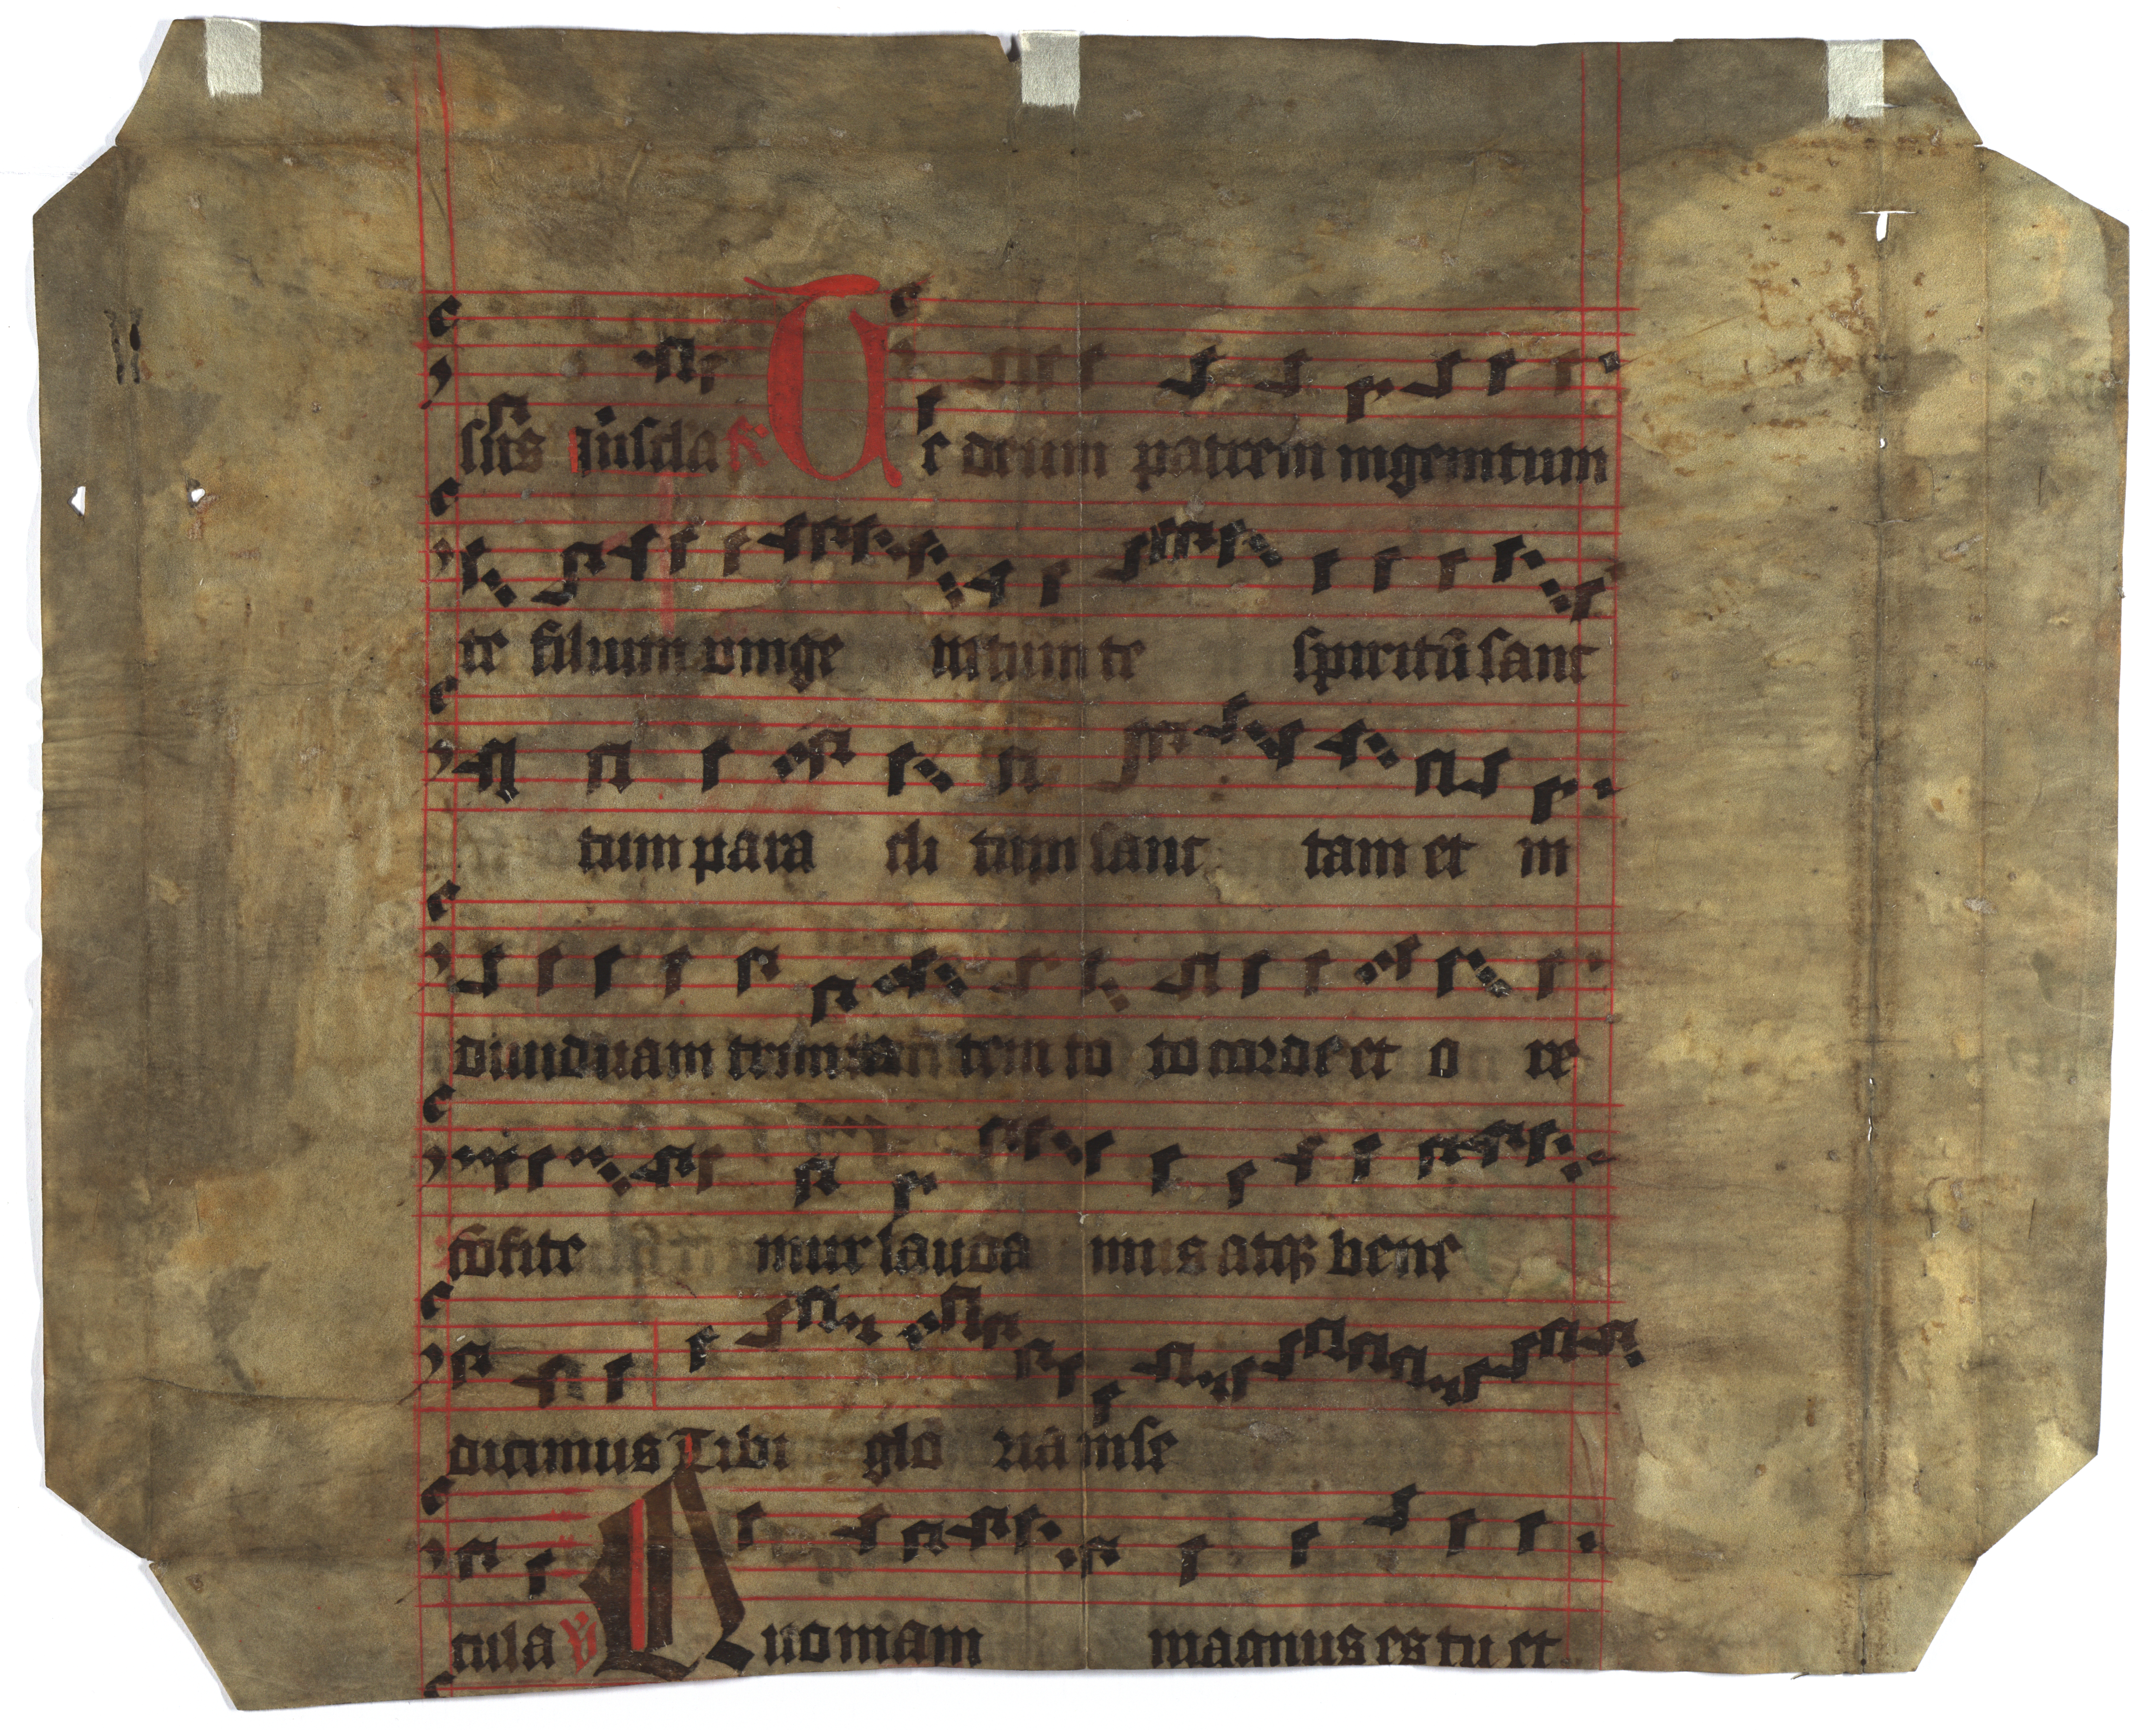 sus in scla R Te deum patrem ingenitum
te filium vnige nitum te spiritū sanc
tum para cli tum sanc tam et in
diuiduam trinitatem to to corde et o re
cōfite mur lauda mus atqȝ bene
dicimus Tibi glo riā in se
cula ꝟ Quoniam magnus es tu et